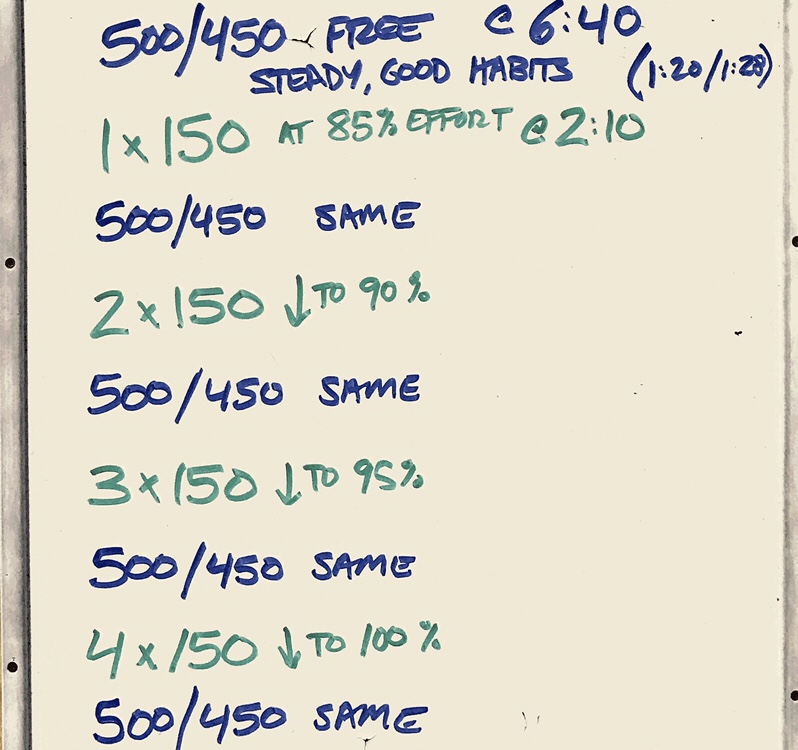 500/450 FREE @ 6:40
STEADY, GOOD HABITS (1:20/1:28)
1 x 150 AT 85% EFFORT @ 2:10
500/450 SAME
2 x 150 ↓ TO 90%
500/450 SAME
3 x 150 ↓ TO 95%
500/450 SAME
4 x 150 ↓ TO 100%
500/450 SAME